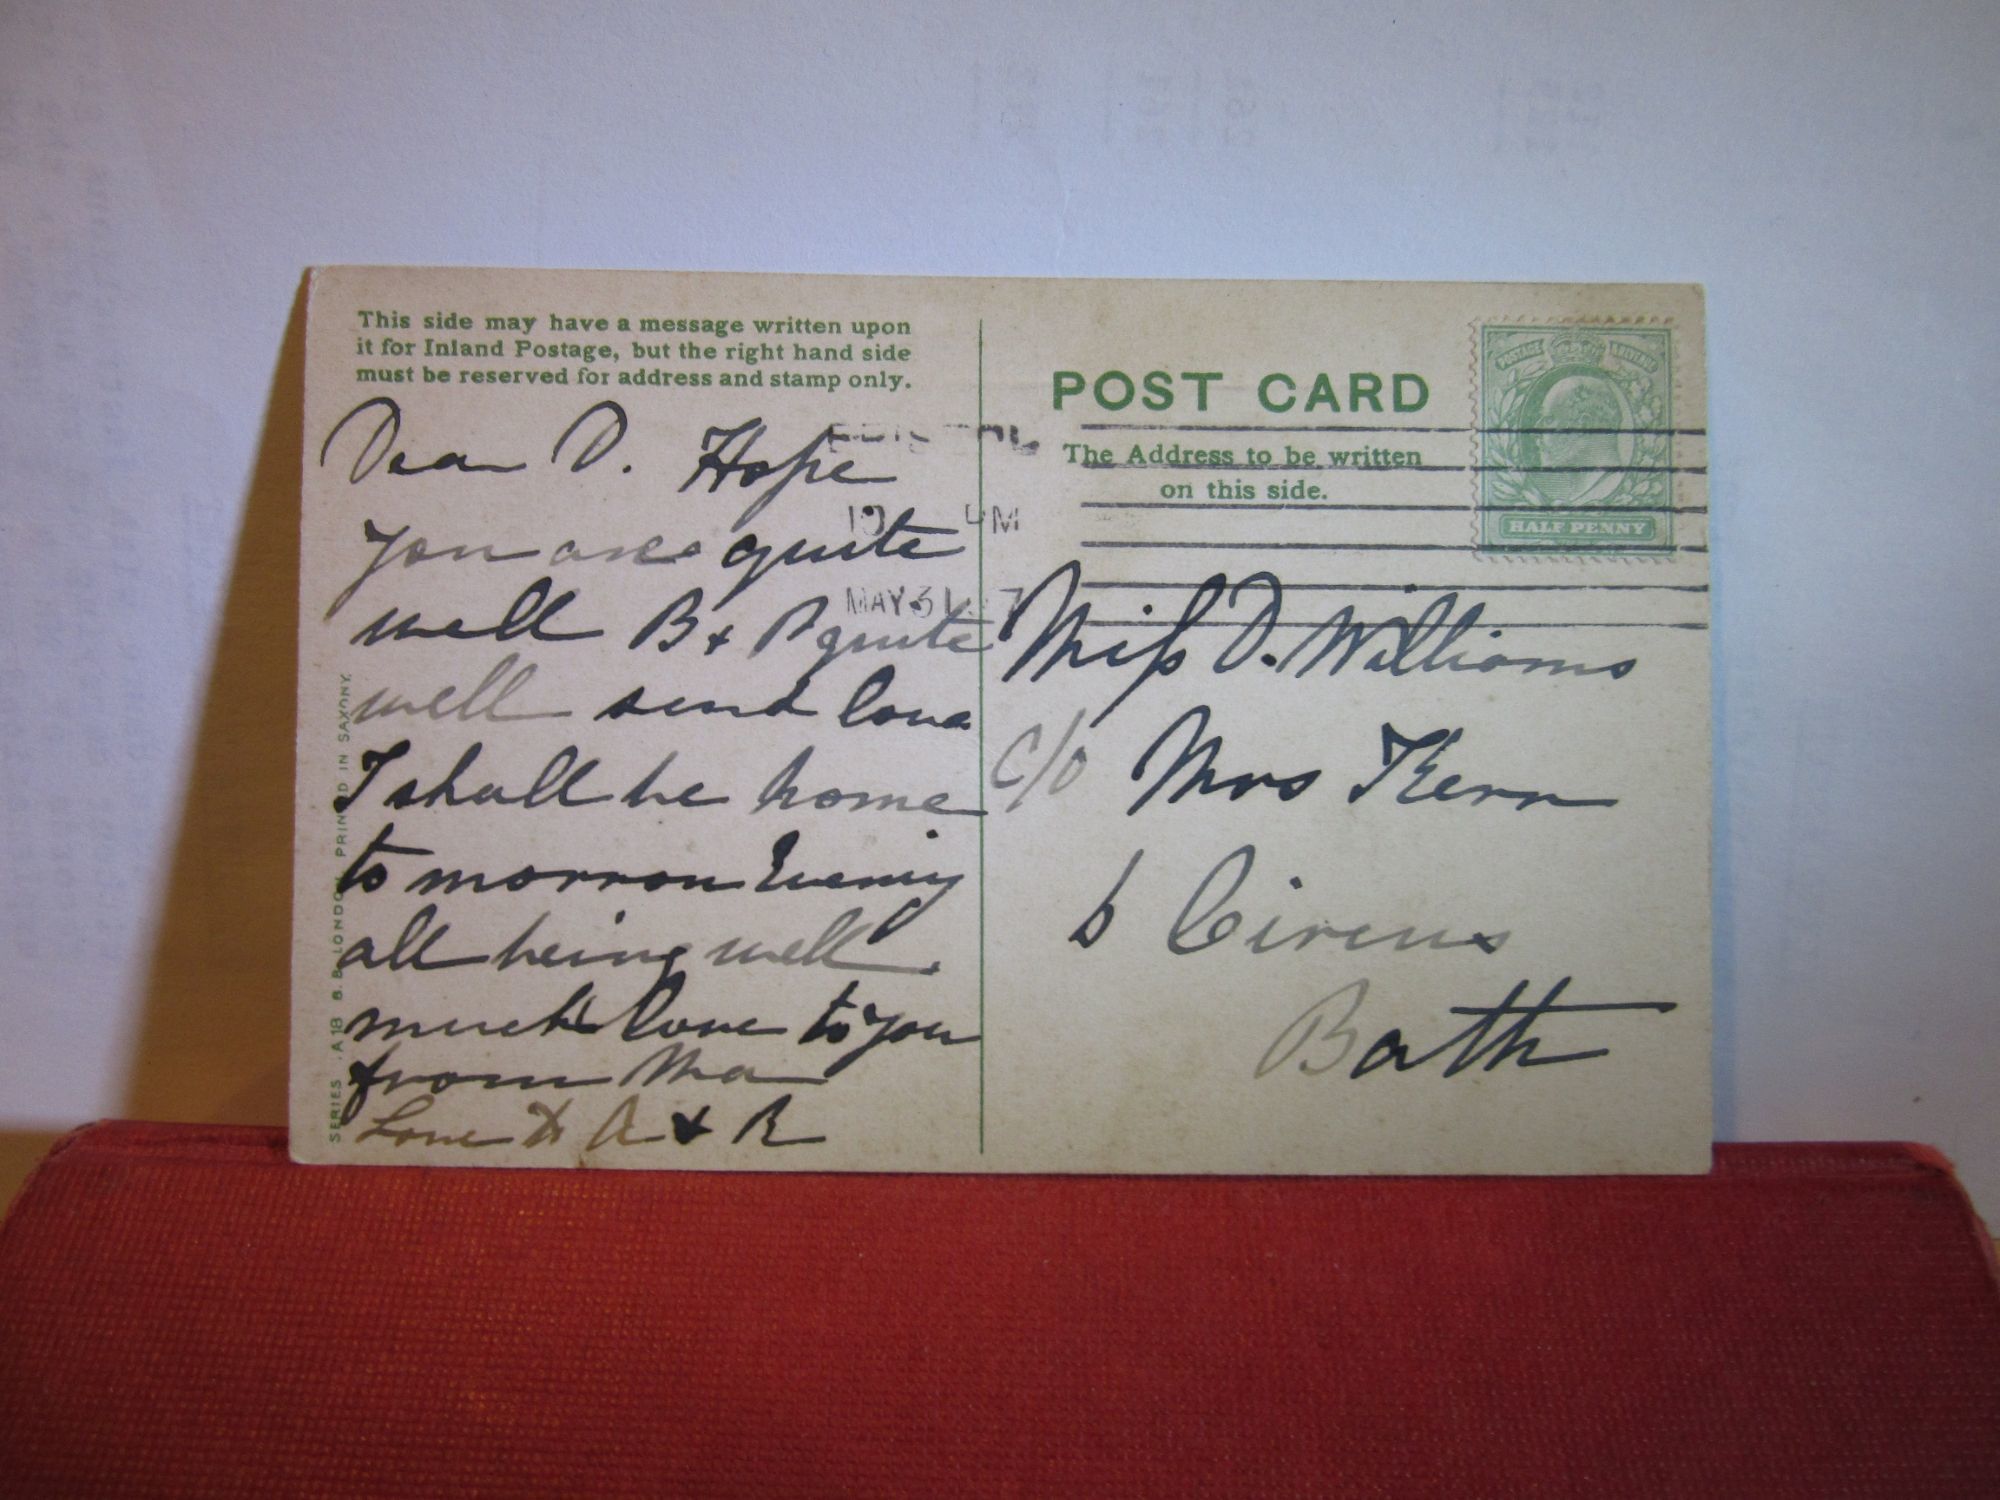 This side may have a message written upon
it for Inland Postage, but the right hand side
must be reserved for address and stamp only.
Dear D. Hope
you are quite
well B + P quite
well send love
I shall be home
to morrow Evening
all being well.
much love to you
from Ma
Love to A & R
SERIES A 18 B.B LONDON PRINTED IN SAXONY.
POST CARD
The Address to be written
on this side.
POSTAGE
HALF PENNY
MAY 31 07
Miss D. Williams
c/o Mrs Kerr
6 Circus
Bath